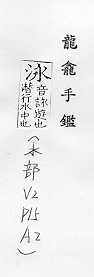 龍龕手鑑
泳音詠遊也
潛行水中也
(水部
V2
P15
A2)